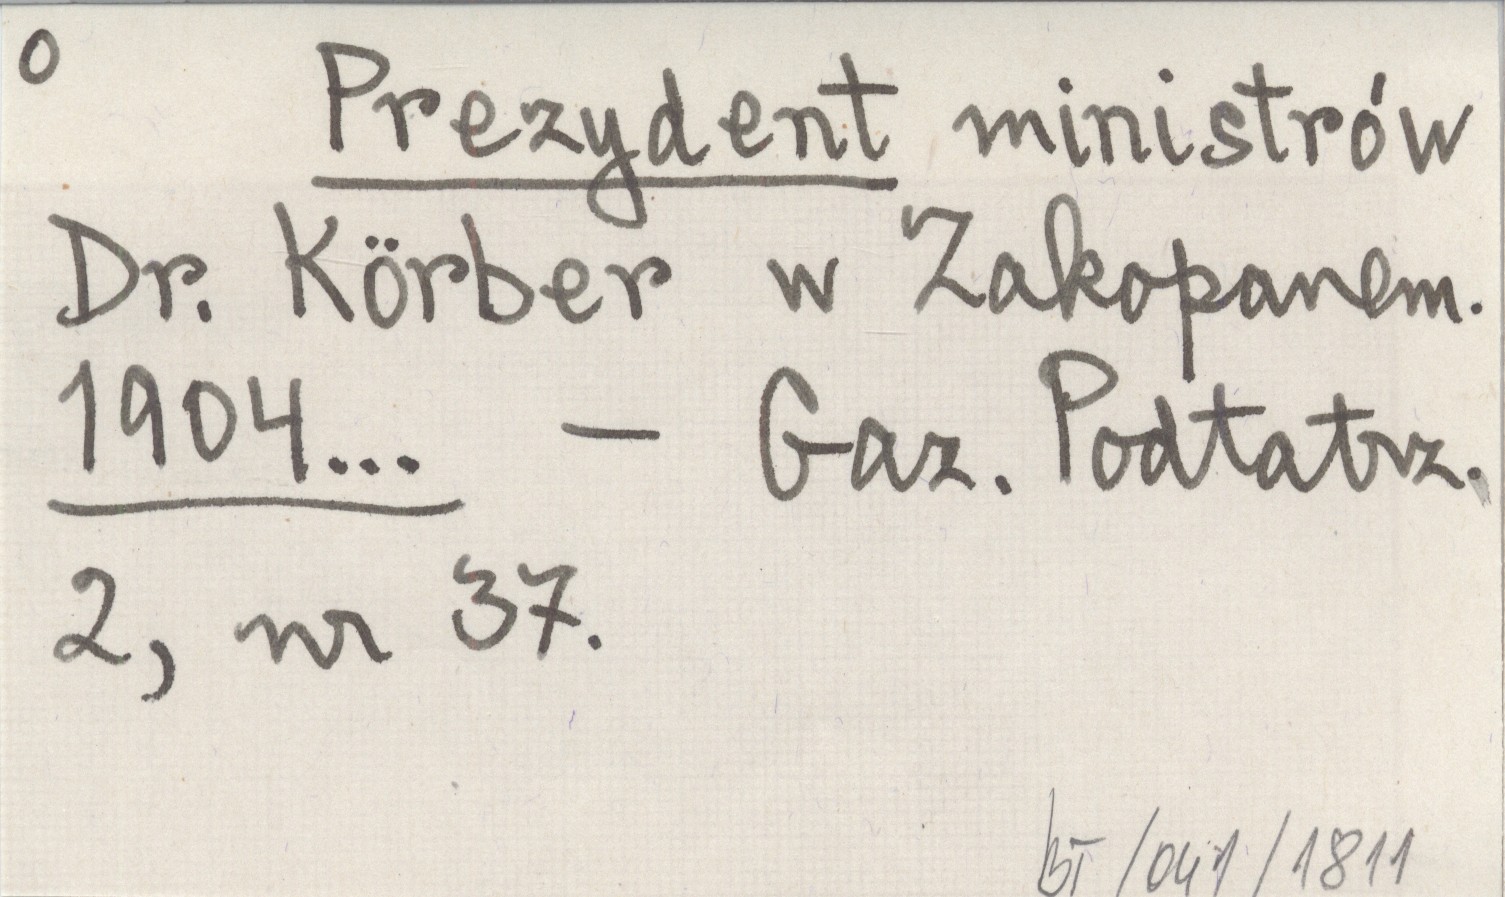 o
Prezydent ministrów
Dr. Körber w Zakopanem.
1904... — Gaz. Podtatrz.
2, nr 37.
bT/041/1811